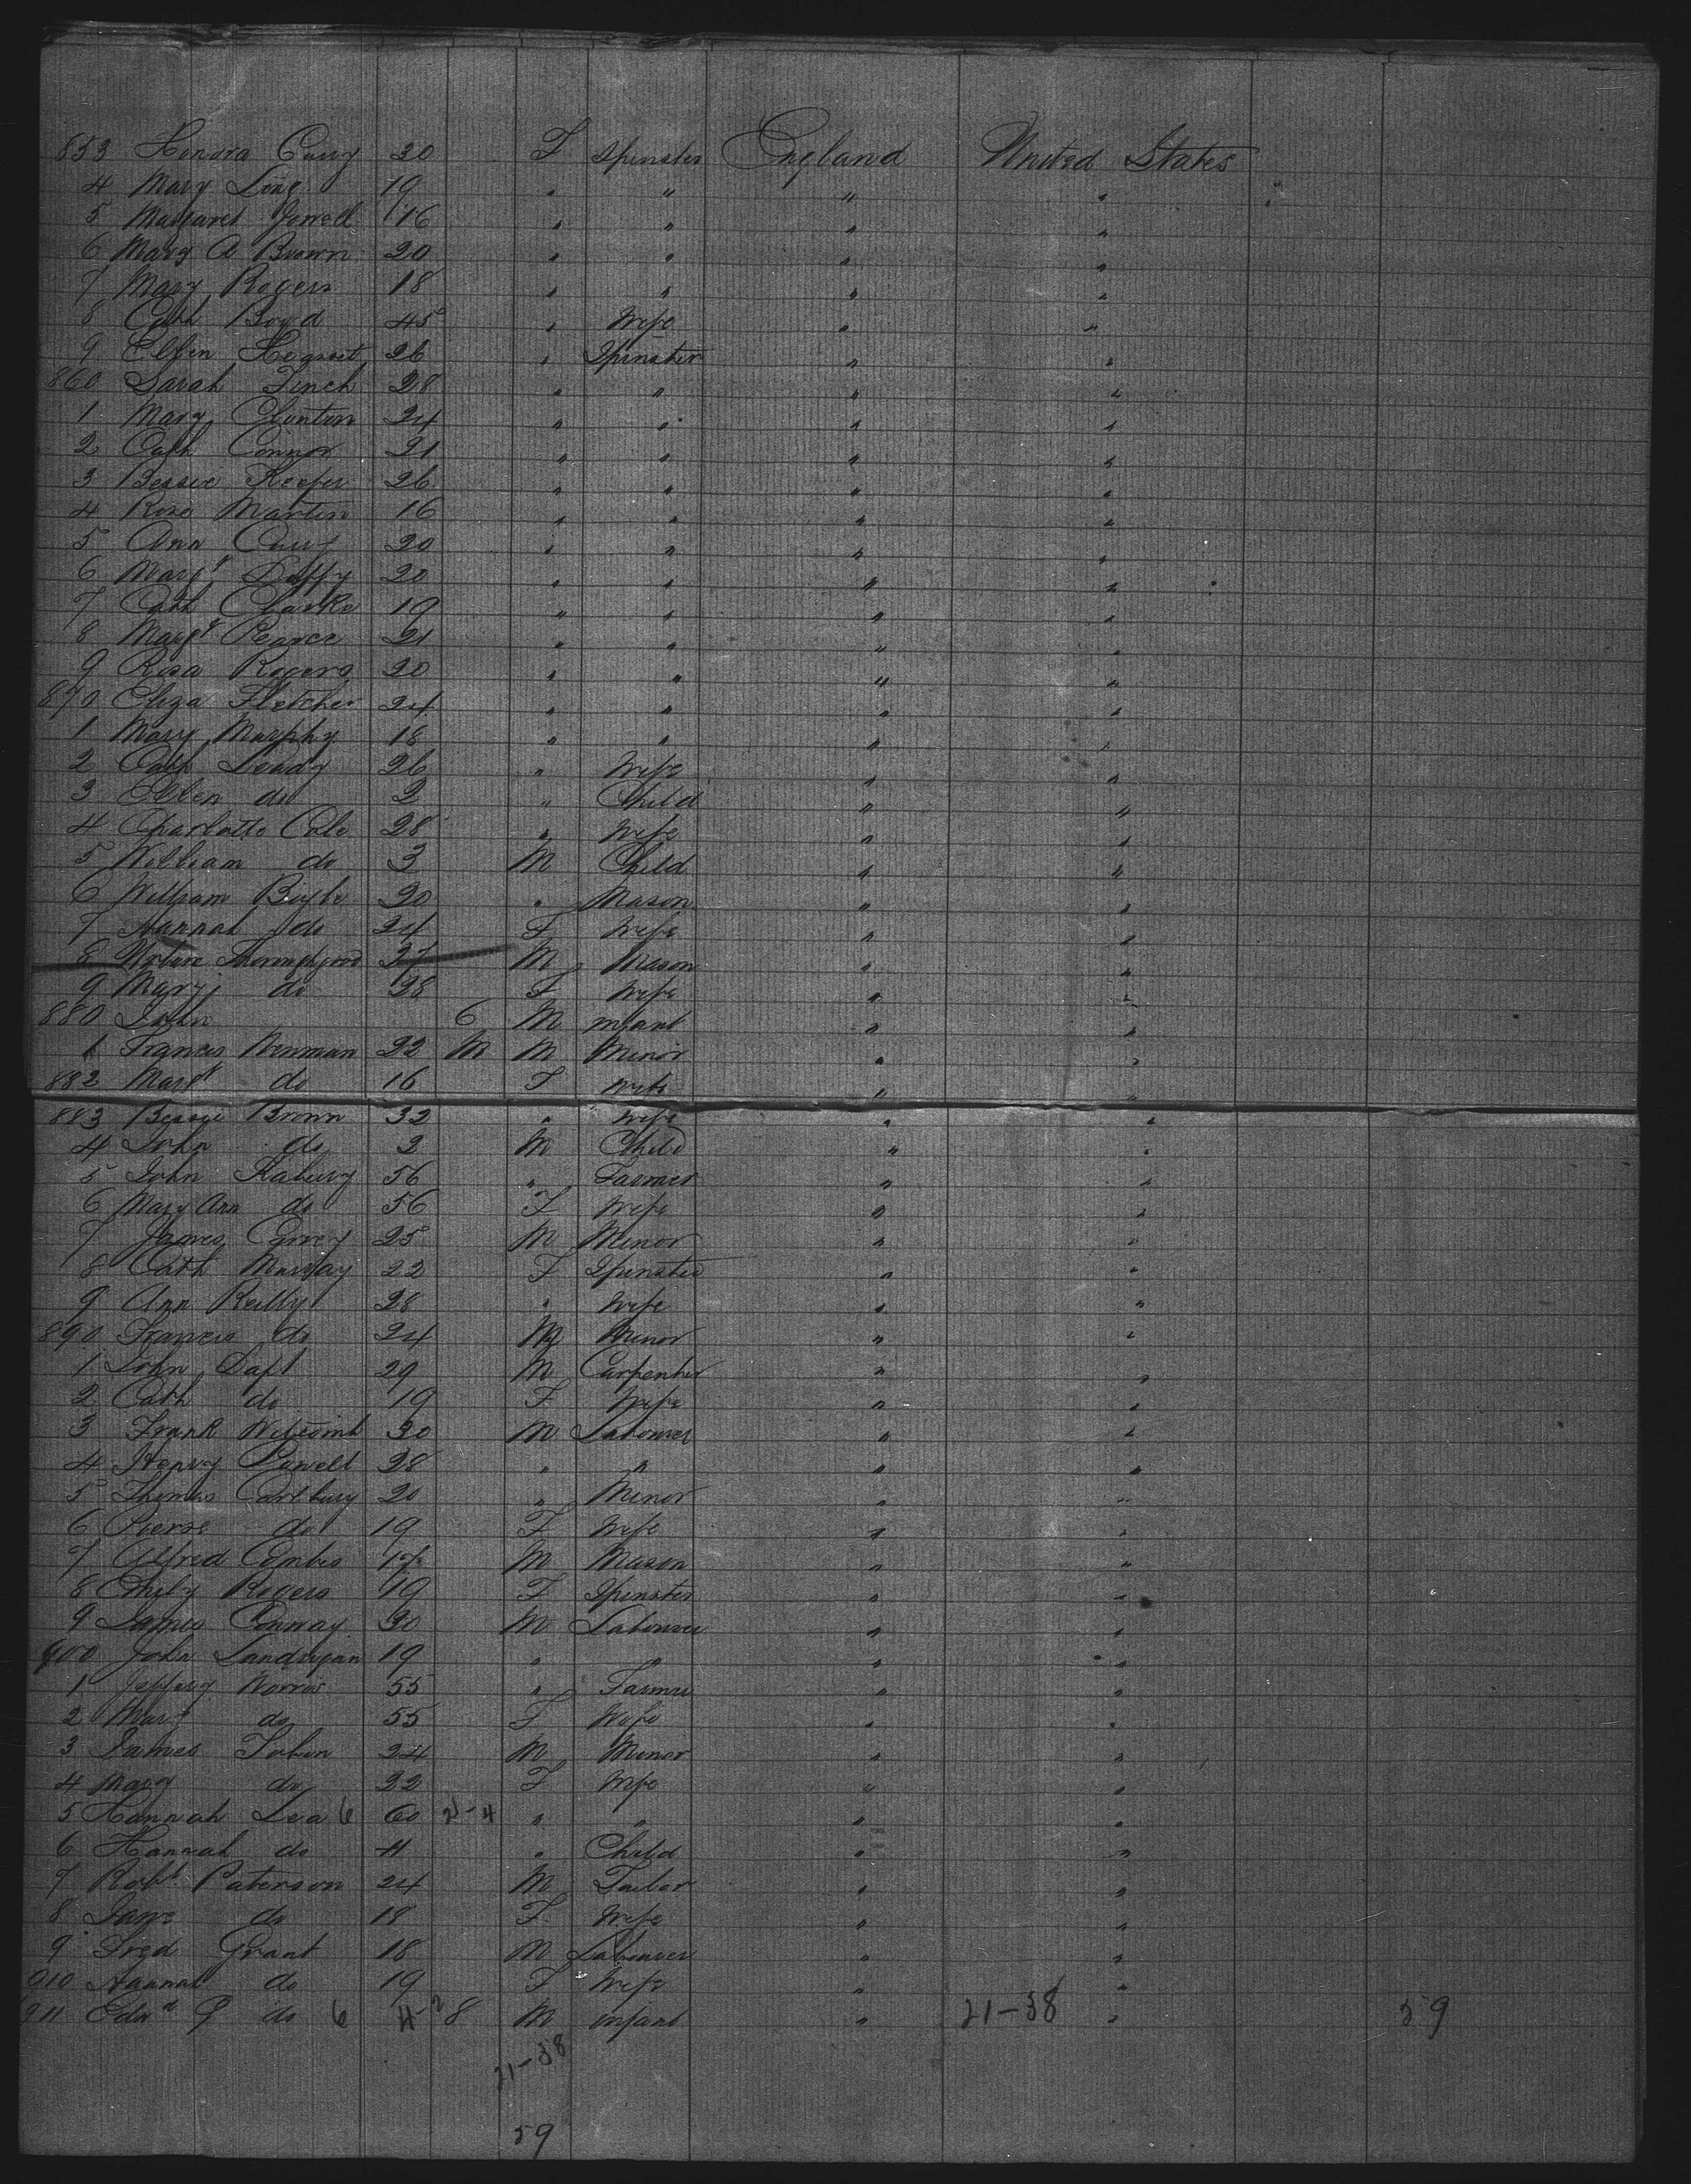 853 Honora Curry 20 F Spinster England United States
4 Mary Long 19 " " " "
5 Margaret Jewell 16 " " " "
6 Mary A Brown 20 " " " "
7 Mary Rogers 18 " " " "
8 Cath Boyd 45 " Wife " "
9 Ellen 26 " Spinster " "
860 Sarah Finch 28 " " " "
1 Mary Clinton 24 " " " "
2 Cath Connor 21 " " " "
3 Bessie Keefer 26 " " " "
4 Rose Martin 16 " " " "
5 Ann Curry 20 " " " "
6 Margt Duffy 20 " " " "
7 Cath Clarke 19 " " " "
8 Margt Pearce 21 " " " "
9 Rosa Rogers 20 " " " "
870 Eliza Fletcher 24 " " " "
1 Mary Murphy 18 " " " "
2 Cath Leady 26 " Wife " "
3 Ellen do 2 " Child " "
4 Charlotte Cole 28 " Wife " "
5 William do 3 M Child " "
6 William Boyle 20 " Mason " "
7 Hannah do 24 F Wife " "
8 Thoroughgood 27 M Mason " "
9 Mary do 28 F Wife " "
880 John 6 M infant " "
1 Francis Newman 22 M M Minor " "
882 Margt do 16 F wife " "
883 Bessie Brown 32 " wife " "
4 John do 2 M Child " "
5 John 56 " Farmer " "
6 Mary Ann do 56 F Wife " "
7 James 25 M Minor " "
8 Cath Murray 22 F Spinster " "
9 Ann Reilly 28 " Wife " "
890 Francis do 24 M Minor " "
1 John Daft 29 M Carpenter " "
2 Cath do 19 F Wife " "
3 Frank Witcomb 30 M Labourer " "
4 Henry Powell 28 " " " "
5 Thomas 20 " Minor " "
6 do 19 F Wife " "
7 Alfred Combes 17 M Mason " "
8 Emily Rogers 19 F Spinster " "
9 James Conway 30 M Labourer " "
900 John Landrigan 19 " " " "
1 Jeffery Norris 55 " Farmer " "
2 Mary do 55 F Wife " "
3 James Tobin 24 M Minor " "
4 Mary do 22 F Wife " "
5 Hannah Lea 6 60 21-4 " " " "
6 Hannah do 11 " Child " "
7 Robt Paterson 24 M Tailor " "
8 Jane do 18 F Wife " "
9 Fred Grant 18 M Labourer " "
910 Hannah do 19 F Wife " "
911 Edwd G do 6 8 M infant " 21-38 " 59
21-38
59